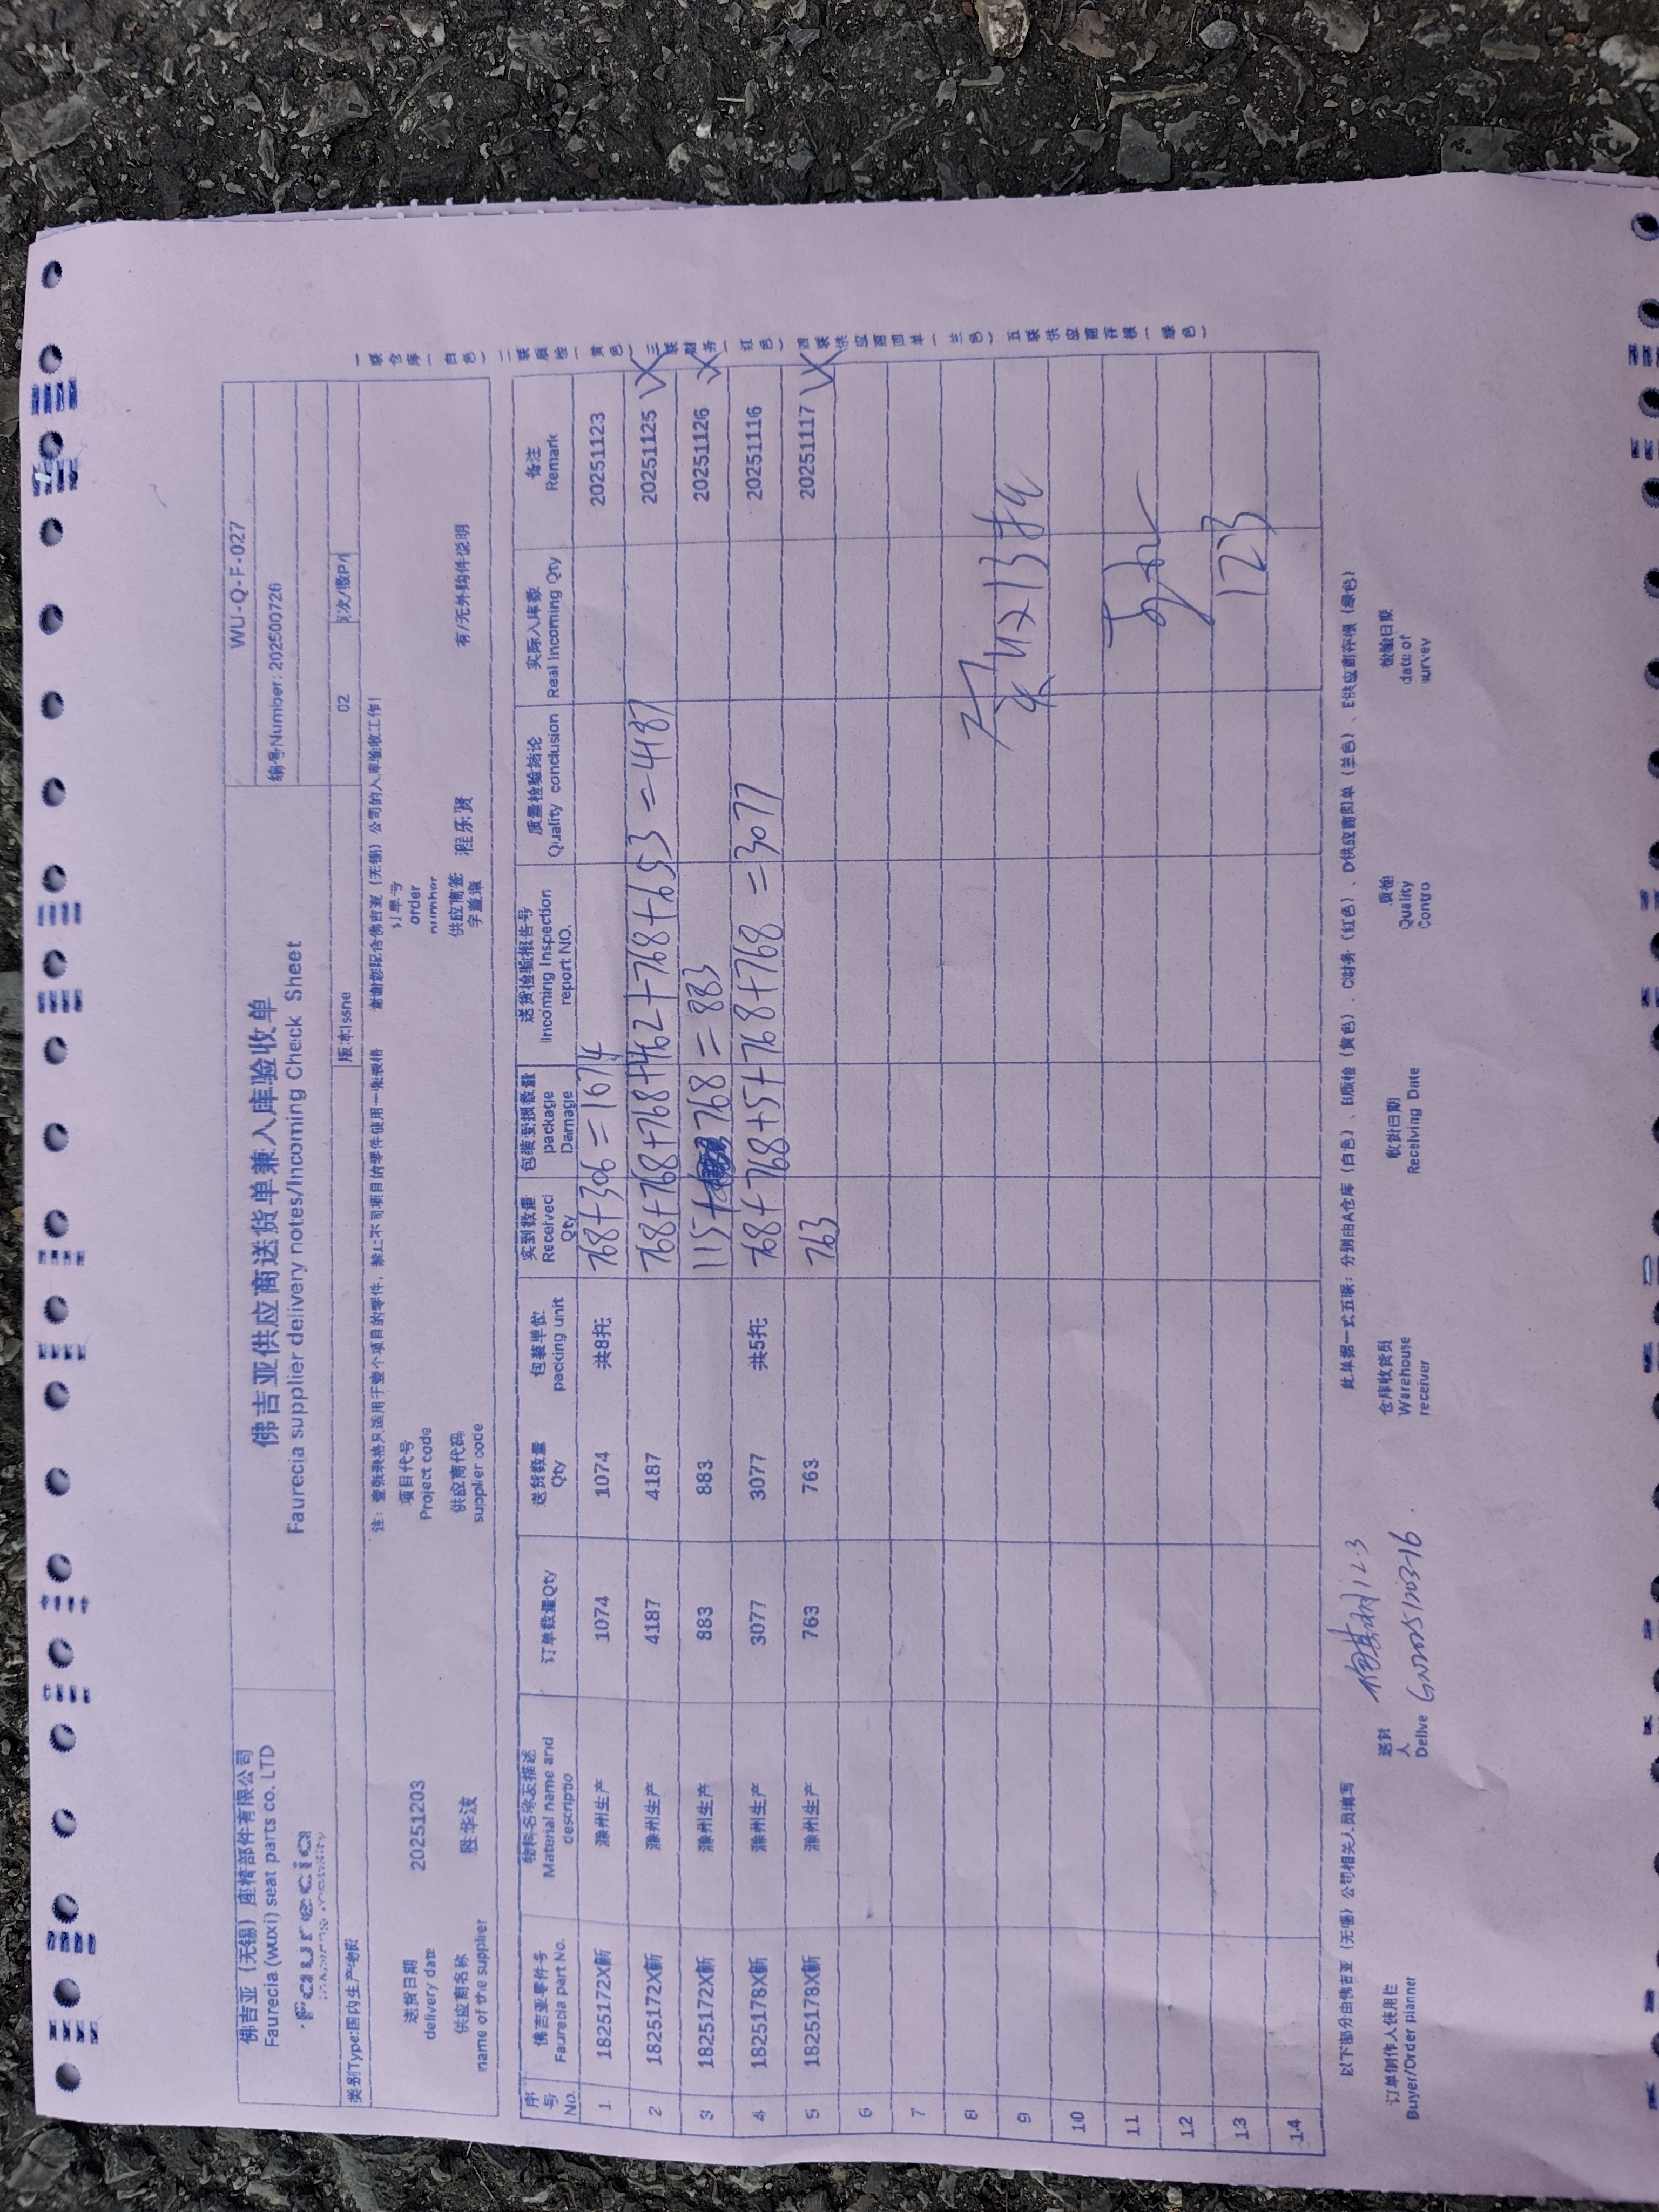 佛吉亚（无锡）座椅部件有限公司
Faurecia (wuxi) seat parts co. LTD
Faurecia
佛吉亚供应商送货单兼入库验收单
Faurecia supplier delivery notes/Incoming Check Sheet
WU-Q-F-027
编号Number: 202500726
类别Type:国内生产物料
版本Issne
02
注：壹张表格只适用于壹个项目的零件，禁止不同项目的零件使用一张表格
谢谢您配合佛吉亚（无锡）公司的入库验收工作！
送货日期
delivery date
20251203
项目代号
Project code
订单号
order
number
供应商名称
name of the supplier
胜华波
供应商代码
supplier code
供应商签
字盖章
程乐贤
有/无外购件说明
序号 No. 佛吉亚零件号 Faurecia part No. 物料名称及描述 Material name and descriptio 订单数量Qty 送货数量 Qty 包装单位 packing unit 实到数量 Received Qty 包装受损数量 package Damage 送货检验报告号 Incoming Inspection report NO. 质量检验结论 Quality conclusion 实际入库数 Real Incoming Qty 备注 Remark
1 1825172X新 滁州生产 1074 1074 共8托 768+306=1674 20251123
2 1825172X新 滁州生产 4187 4187 768+768+768+462+768+653=4187 20251125
3 1825172X新 滁州生产 883 883 115+768=883 20251126
4 1825178X新 滁州生产 3077 3077 共5托 768+768+5+768+768=3077 20251116
5 1825178X新 滁州生产 763 763 763 20251117
6
7
8
9
10
11
12
13 123
14
一联仓库（白色）二联质检（黄色）三联财务（红色）四联供应商回单（兰色）五联供应商存根（绿色）
以下部分由佛吉亚（无锡）公司相关人员填写
此单据一式五联：分别由A仓库（白色）、B质检（黄色）、C财务（红色）、D供应商回单（兰色）、E供应商存根（绿色）
订单制作人使用栏
Buyer/Order planner
送货
人
Delive
12.3
仓库收货员
Warehouse
receiver
收货日期
Receiving Date
质检
Quality
Contro
检验日期
date of
survey